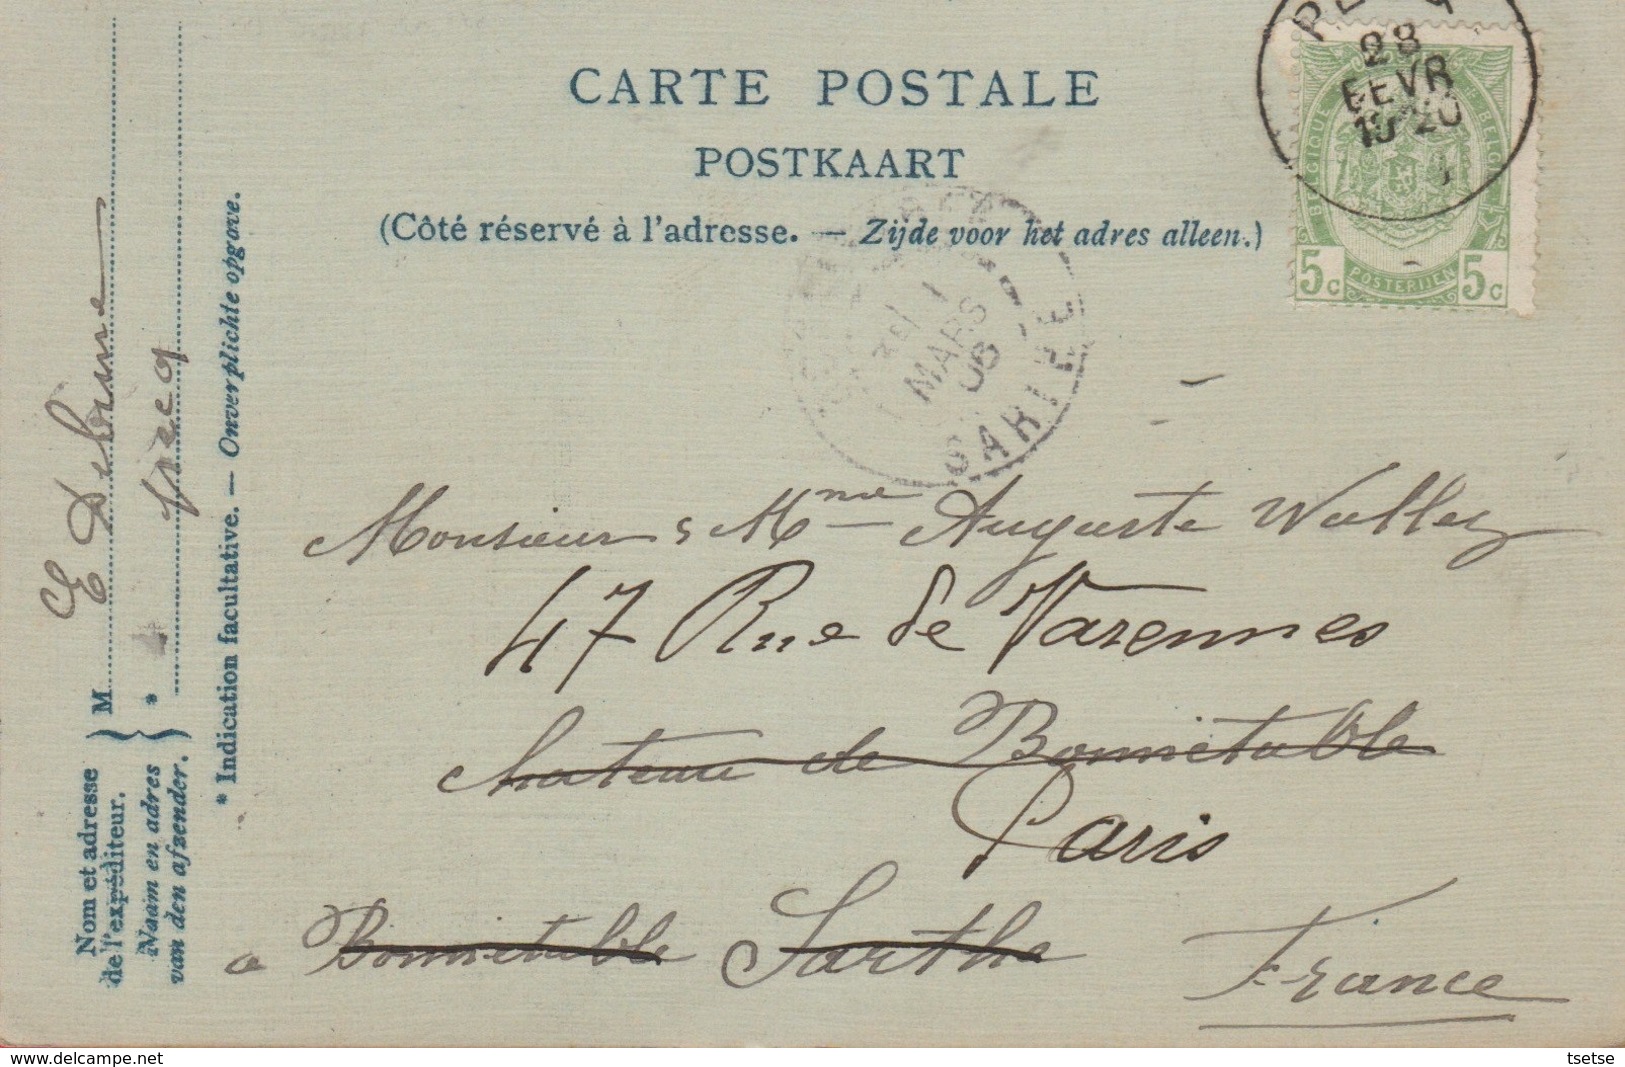 CARTE POSTALE
POSTKAART
(Côté réservé à l'adresse. — Zijde voor het adres alleen.)
28
FEVR
BELGIQUE
BELGIË
5c POSTERIJEN 5c
MARS
06
SARTHE
Monsieur & Mme Auguste Wallez
47 Rue de Varennes
Chateau de Bonnétable
Paris
a Bonnétable Sarthe
France
E Dehune
Nom et adresse
de l'expéditeur.
Naam en adres
van den afzender.
M
*
* Indication facultative. — Onverplichte opgave.
delcampe.net
tsetse